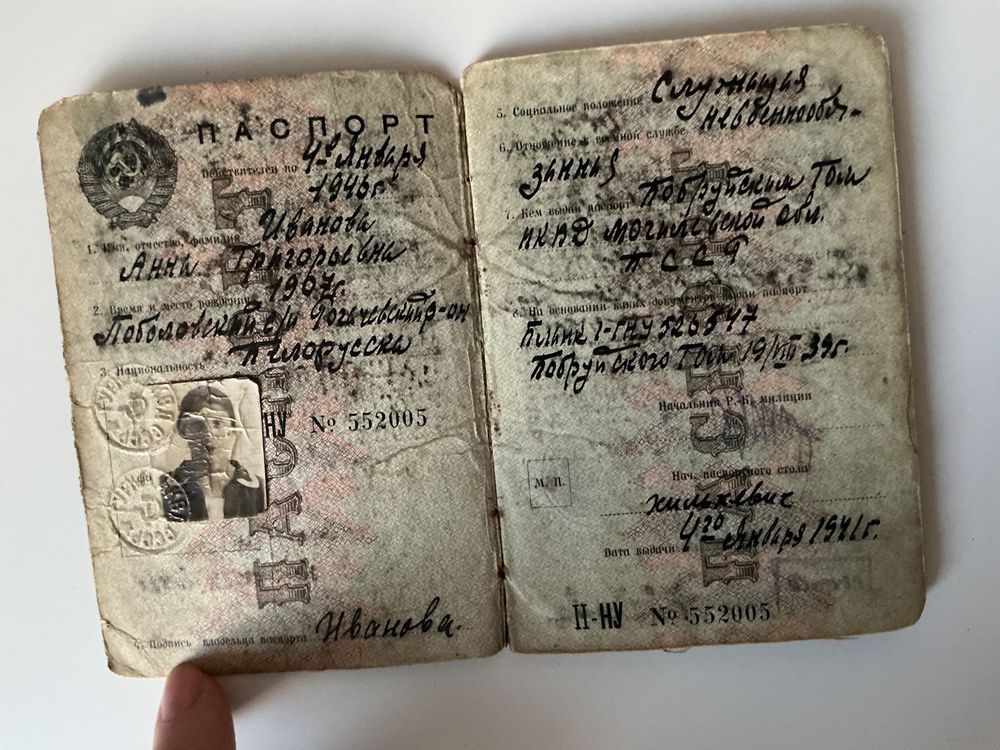 ПАСПОРТ
Действителен по 4го Января
1946г.
Иванова
1. Имя, отчество, фамилия
Анна Григорьевна
1907г.
2. Время и место рождения
Поболовский с/с Рогачевский р-он
Белорусска
3. Национальность
НУ № 552005
4. Подпись владельца паспорта Иванова.
5. Социальное положение Служащая
6. Отношение к военной службе невоеннообя-
занная
7. Кем выдан паспорт Бобруйским Гом
НКВД Могилевской обл.
БССР
8. На основании каких документов выдан паспорт
Бланк 1-ГНУ 526547
Бобруйского Гом 19/VIII 39г.
Начальник Р.-К. милиции
М. П.
Нач. паспортного стола
Хилькевич
Дата выдачи 4го Января 1941г.
II-НУ № 552005